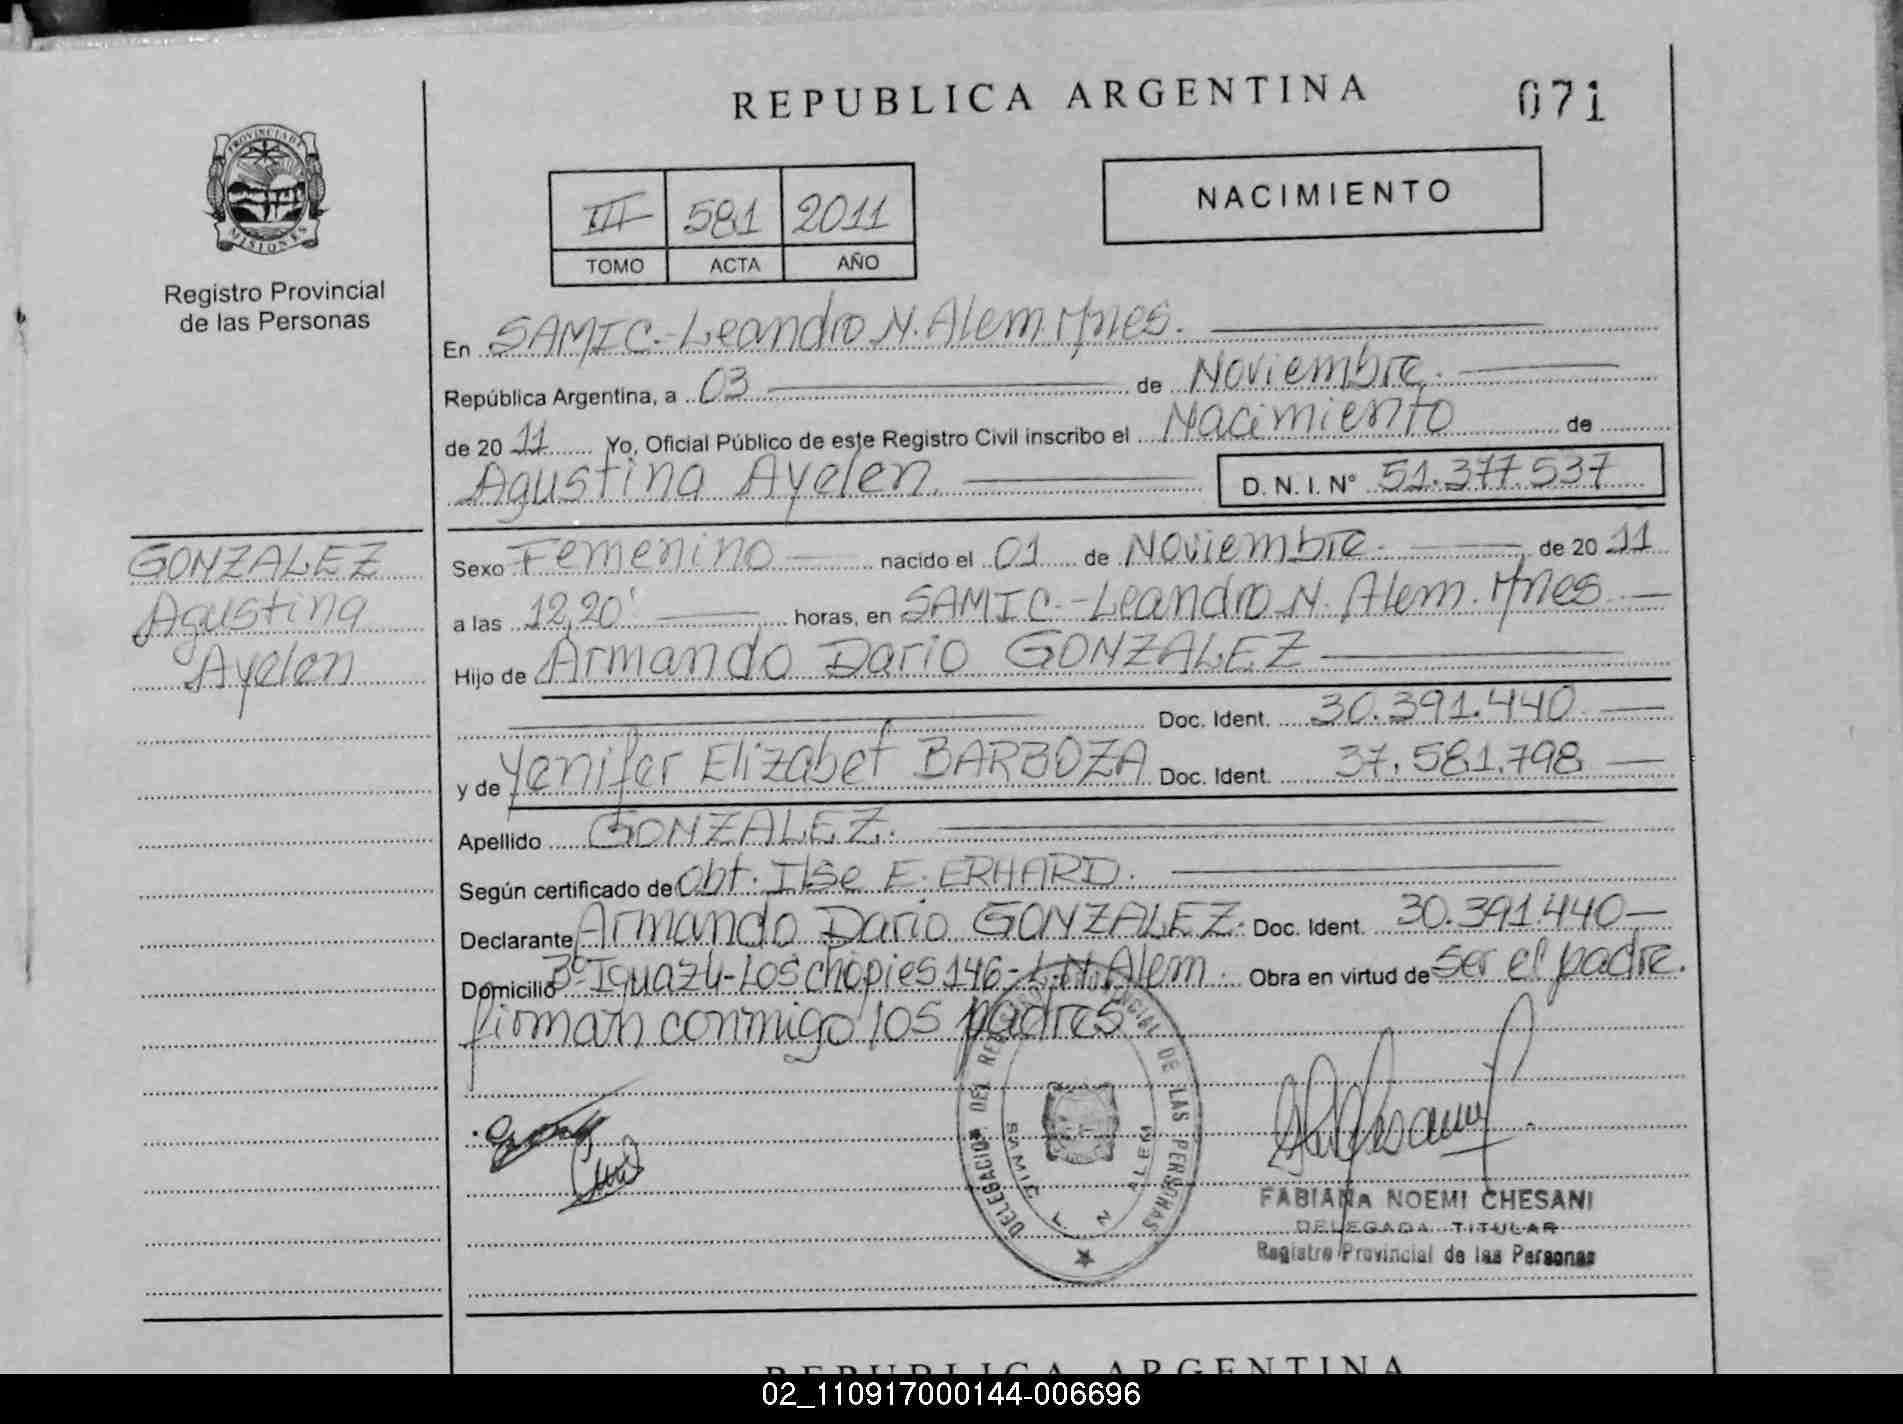 REPUBLICA ARGENTINA
071
PROVINCIA DE
MISIONES
Registro Provincial
de las Personas
III 581 2011
TOMO ACTA AÑO
NACIMIENTO
En SAMIC.-Leandro N. Alem. Mnes.
República Argentina, a 03 de Noviembre.
de 2011 Yo, Oficial Público de este Registro Civil inscribo el Nacimiento de
Agustina Ayelen. D. N. I. N° 51.377.537
GONZALEZ
Agustina
Ayelen
Sexo Femenino nacido el 01 de Noviembre. de 2011
a las 12,20' horas, en SAMIC.-Leandro N. Alem. Mnes
Hijo de Armando Dario GONZALEZ
Doc. Ident. 30.391.440
y de Yenifer Elizabet BARBOZA Doc. Ident. 37.581.798
Apellido GONZALEZ.
Según certificado de Obt. Ilse E. ERHARD.
Declarante Armando Dario GONZALEZ. Doc. Ident. 30.391.440
Domicilio B° Iguazu-Los chopies 146-L.N. Alem. Obra en virtud de ser el padre.
firman conmigo los padres
DELEGACION DEL REGISTRO PROVINCIAL DE LAS PERSONAS
SAMIC L N ALEM
FABIANA NOEMI CHESANI
DELEGADA TITULAR
Registro Provincial de las Personas
REPUBLICA ARGENTINA
02_110917000144-006696